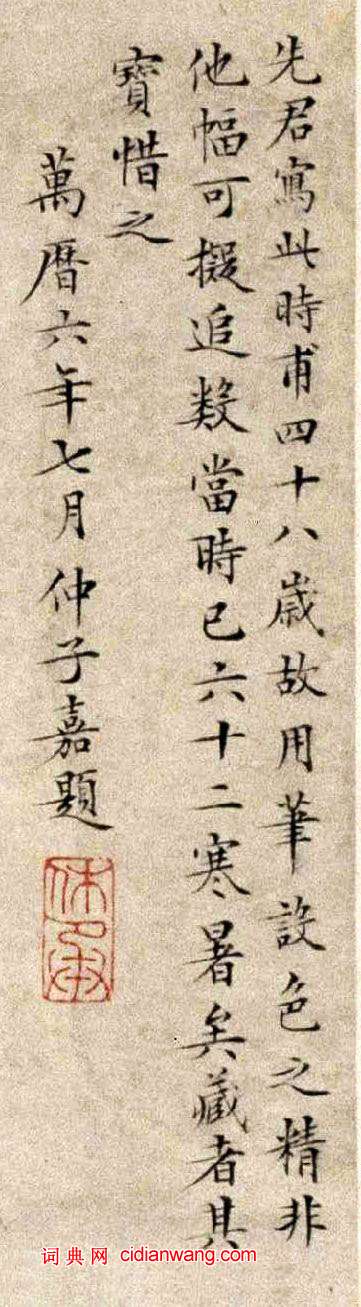 先君寫此時甫四十八歲故用筆設色之精非
他幅可擬追數當時已六十二寒暑矣藏者其
寶惜之
萬曆六年七月仲子嘉題
休承
词典网 cidianwang.com